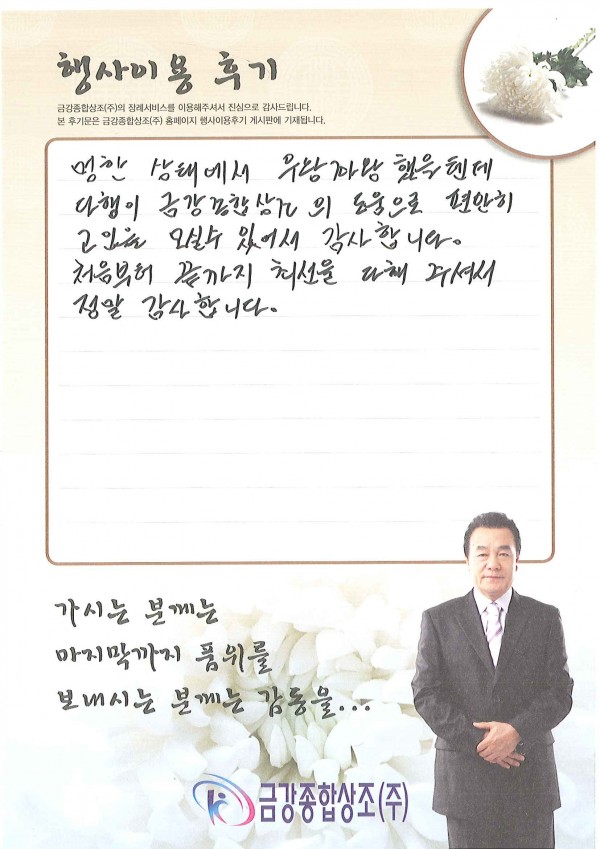 행사이용 후기
금강종합상조(주)의 장례서비스를 이용해주셔서 진심으로 감사드립니다.
본 후기문은 금강종합상조(주) 홈페이지 행사이용후기 게시판에 기재됩니다.
멍한 상태에서 우왕자왕 했을텐데
다행이 금강종합상조의 도움으로 편안히
고인을 모실수 있어서 감사합니다.
처음부터 끝까지 최선을 다해 주셔서
정말 감사합니다.
가시는 분께는
마지막까지 품위를
보내시는 분께는 감동을...
금강종합상조(주)